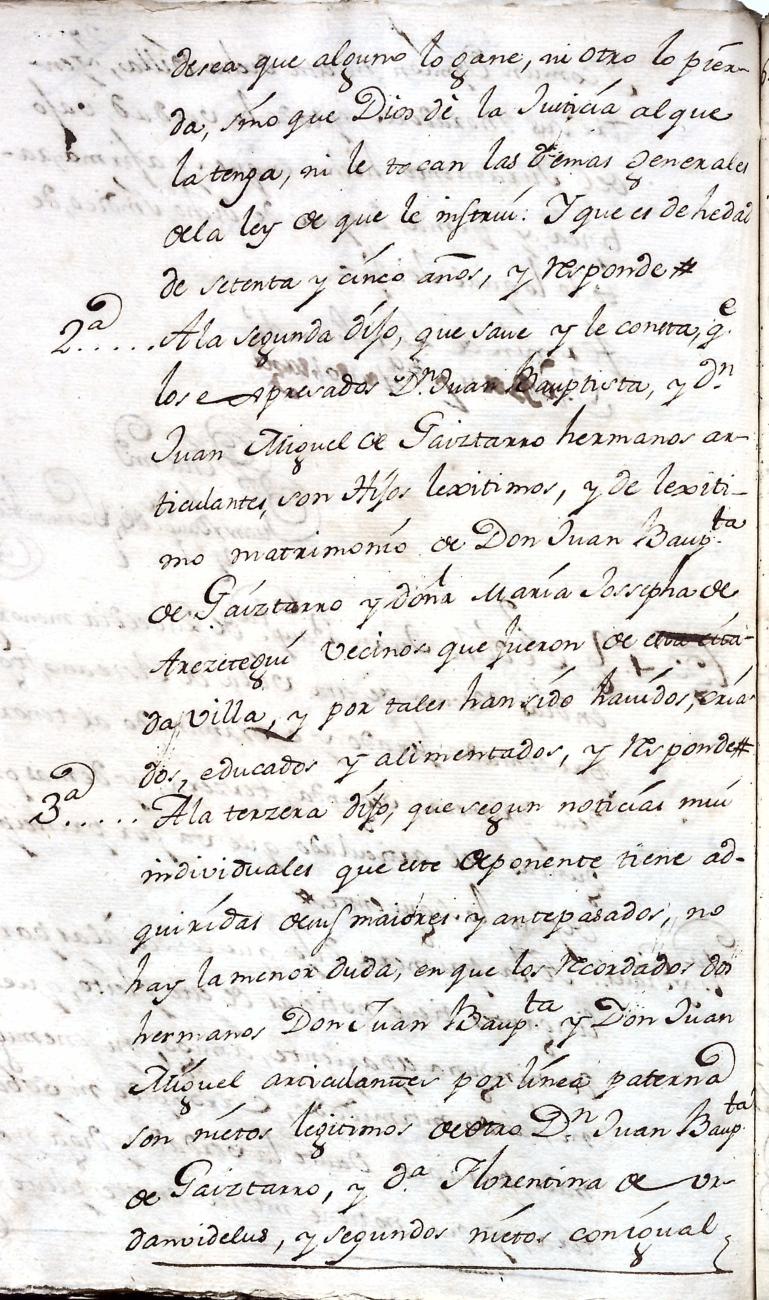 desea que alguno lo gane, ni otro lo pier-
da, sino que Dios dè la Justicia al que
la tenga, ni le tocan las demas generales
dela ley de que le instruí: Y que es de hedad
de setenta y cinco años, y responde #
2ª..... Ala segunda díjo, que save y le consta, q.e
los expresados Dn. Juan Bauptista, y dn
Juan Miguel de Gaiztarro hermanos ar-
ticulantes, son Hijos lexitimos, y de lexiti-
mo matrimonio de Don Juan Baup.ta
de Gaiztarro y doña María Josepha de
Arezetegui vecinos que fueron de esta cita-
da villa, y por tales han sido havidos, cria-
dos, educados y alimentados, y responde #
3ª..... Ala terzera díjo, que segun noticias muí
individuales que este deponente tiene ad-
quiridas de sus maiores y antepasados, no
hay la menor duda, en que los recordados dos
hermanos Don Juan Baup.ta y Don Juan
Miguel articulantes por línea paterna
son nietos legitimos de otro Dn Juan Baup.ta
de Gaiztarro, y d.a Florentina de Ur-
danvidelus, y segundos nietos con igual